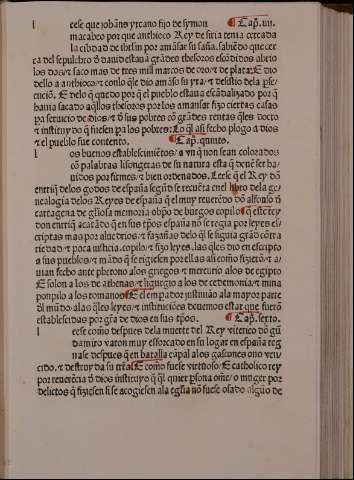 l eese que joháns yrcano fijo de symon ¶ Cap. iiij.
macabeo por que anthioco Rey de siria tenia cercada
la cibdad de iħrlm por amāsar su saña. sabiēdo que cer
ca del sepulchro đ dauid estauā grādes thesoros escōdidos abrio
los dos/ & saco mas de tres mill marcos de oro/ & de plata: E dio
dello a anthioco/ & conło q̄le dio amāso su yra/ & desistio dela pse
cuciō. E delo q̄ quedo por q̄ el pueblo estaua escādalizado por q̄
hauia sacado aq̄llos thesoros por los amansar fizo ciertas casas
pa seruicio de dios/ & đ sus pobres cō grādes rentas q̄les docto
& instituyo đ q̄ fuesen pa los pobres: Lo q̄l asi fecho plogo a dios
& el pueblo fue contento. ¶ Cap. quinto.
l os buenos establescimiētos/ a vn q̄ non sean colorados
cō palabras lisongeras de su natura esta q̄ deuē ser ha
uidos por firmes/ & bien ordenados. Leese que el Rey dō
enrriq̄ delos godos de españa segūd se recuēta enel libro dela ge/
nealogia delos Reyes de españa q̄l muy reuerēdo dō alfonso đ
cartagena de gliosa memoria obpo de burgos copilo: q̄ este rey
don enrriq̄ acatādo q̄ en sus tpōs españa nō se regia por leyes es/
criptas mas por aluedrios/ & fazañas delo q̄l se siguia grād cōtra
riedad/ & poca iusticia. copilo/ & fizo leyes. las q̄les dio en escripto
a sus pueblos/ & mādo q̄ se rigiesen por ellas asi como fizierō/ & a/
uian fecho ante pheroneo alos griegos/ & mercurio alos de egipto
E solon a los de athenas/ & ligurgio a los de cedemonia/ & numa
ponpilo a los romanos: E el enpador justiniáo ala mayor parte
đl mūdo. alo q̄les leyes/ & instituciões deuemos estar que fuerō
establescidas por gra de dios en sus tpōs. ¶ Cap. sexto.
l eese como despues dela muerte del Rey viterico dō gū
damiro varon muy esforcado en su logar en españa reg
nase despues q̄ en batalla cāpal alos gascones ouo ven/
cido. & destroydo su trra. E como fuese virtuoso/ & catholico rey
por reuerēcia đ dios instituyo q̄ q̄l quier psona oñe/ o muger por
delictos q̄ fiziesen si se acogiesen ala eglia nō fuese osado alguno de